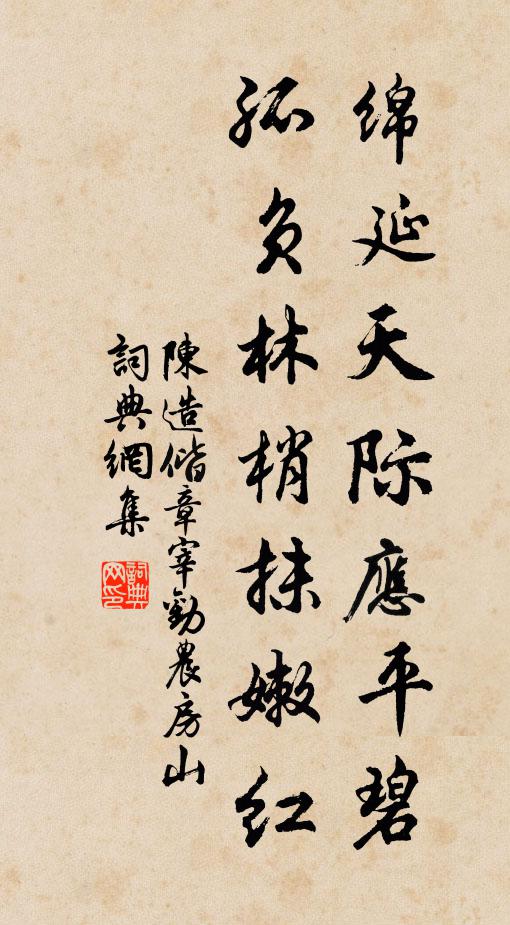 绵延天际應平碧
孤负林梢抹嫩红
陳造偕章宰勸農房山
詞典網集
詞典网印